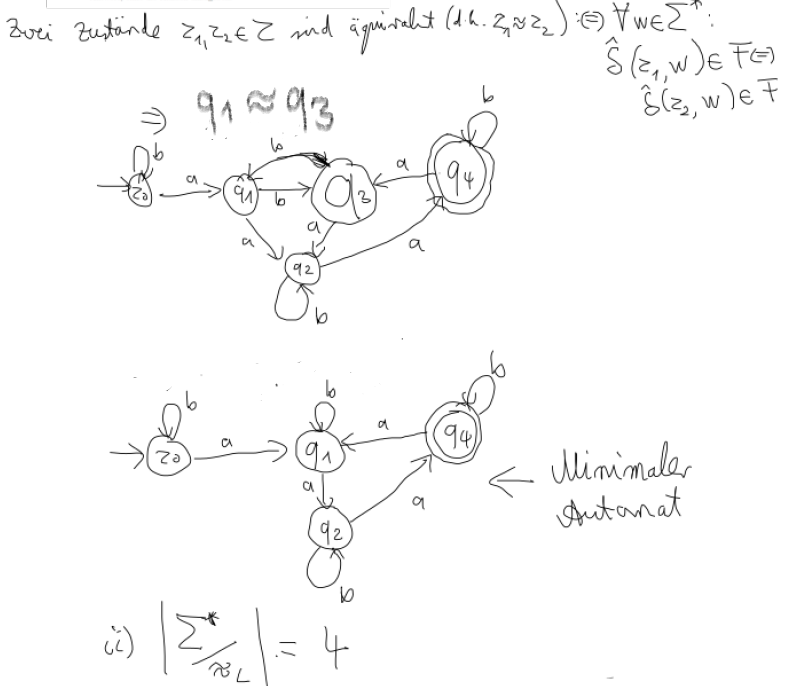 Zwei Zustände z₁,z₂∈Z sind äquivalent (d.h. z₁≈z₂) :⇔ ∀w∈Σ*:
δ̂(z₁,w)∈F⇔
δ̂(z₂,w)∈F
⇒ q1≈q3
b
b
b
z0
a
q1
b
q3
a
q4
a
a
q2
a
b
b
b
b
z0
a
q1
a
q4
a
q2
a
b
← Minimaler
Automat
ii) |Σ*/≈L| = 4